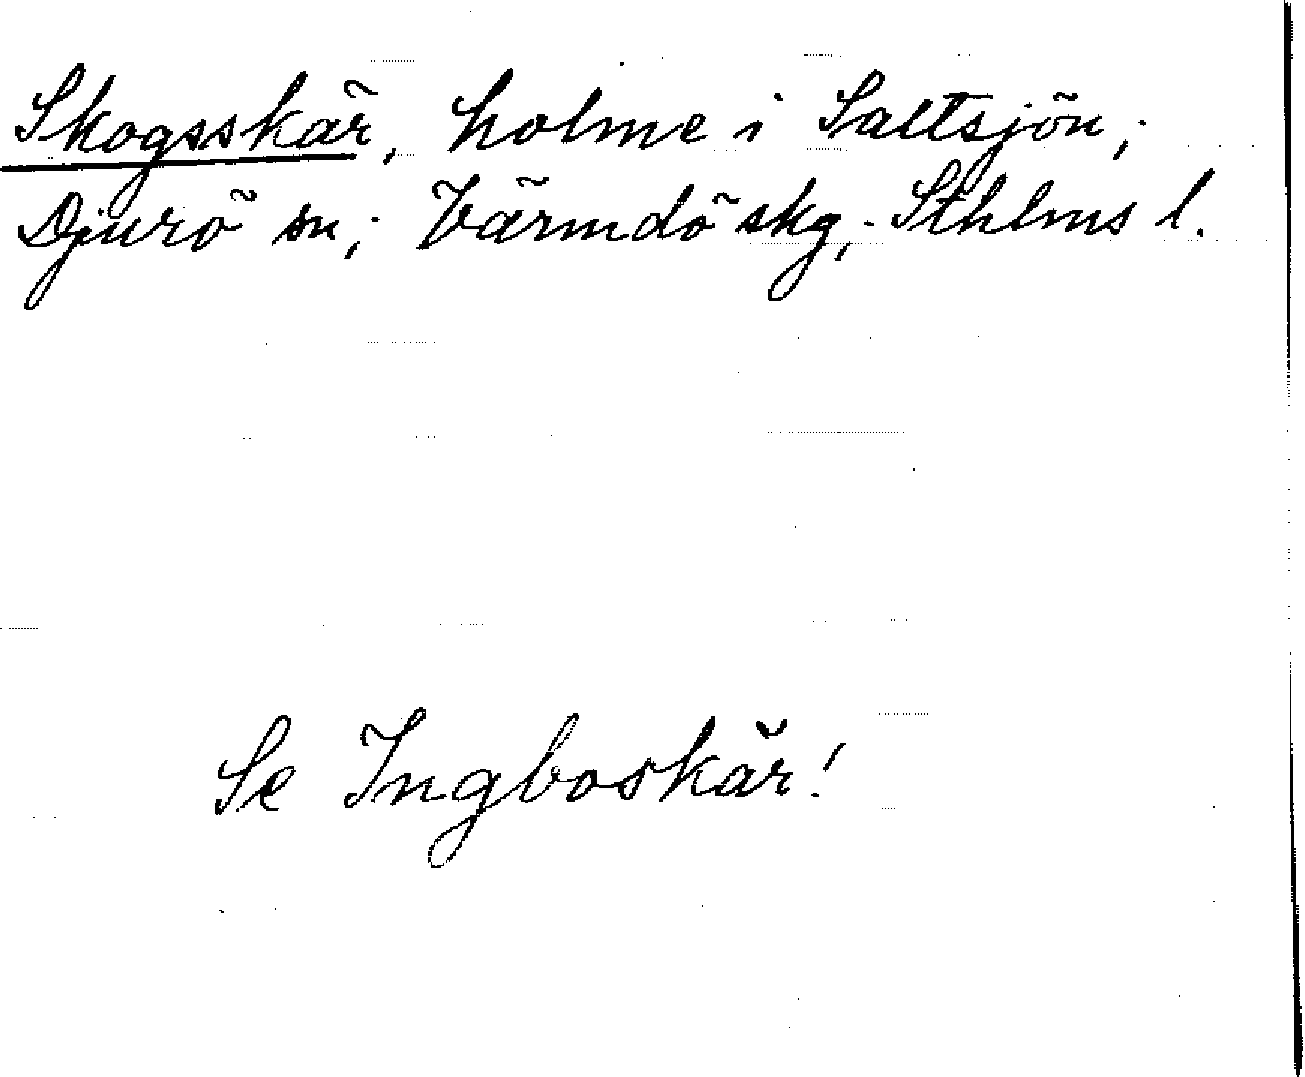 Skogsskär, holme i Saltsjön;
Djurö sn; Värmdö skg; Sthlms l.
Se Ingboskär!